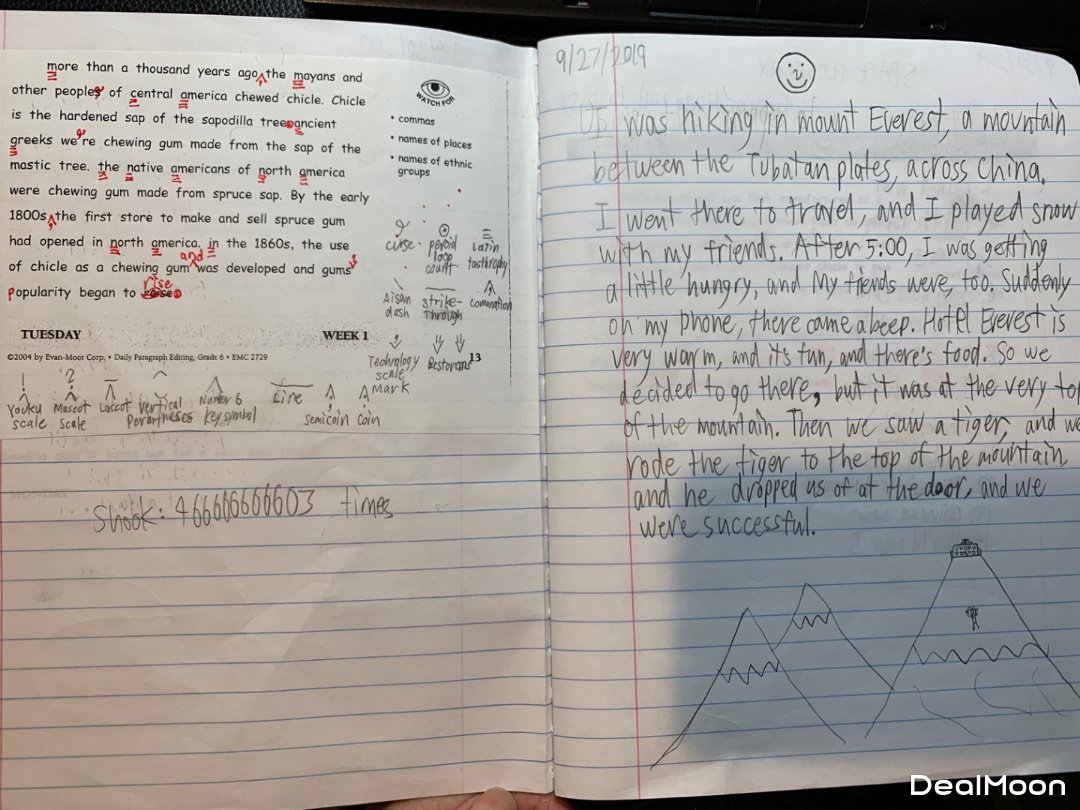 more than a thousand years ago, the mayans and
other peoples of central america chewed chicle. Chicle
is the hardened sap of the sapodilla tree. ancient
greeks were chewing gum made from the sap of the
mastic tree. the native americans of north america
were chewing gum made from spruce sap. By the early
1800s, the first store to make and sell spruce gum
had opened in north america. in the 1860s, the use
and
of chicle as a chewing gum was developed and gums
rise
popularity began to
WATCH FOR
• commas
• names of places
• names of ethnic
groups
curse: peroid Latin
loop tasthraphy
count
Aisan strike- comanation
dash through
TUESDAY WEEK 1
©2004 by Evan-Moor Corp. • Daily Paragraph Editing, Grade 6 • EMC 2729
13
Technology Restorans
scale
mark
Yocku Mascot Lascot Vertical Number 6 Line semicoin coin
scale Scale Perantheses key symbol
Shook: 466666666603 times
9/27/2019
I was hiking in mount Everest, a mountain
between the Tubatan plates, across China.
I went there to travel, and I played snow
with my friends. After 5:00, I was getting
a little hungry, and My friends were, too. Suddenly
on my phone, there came a beep. Hotel Everest is
very warm, and it's fun, and there's food. So we
decided to go there, but it was at the very top
of the mountain. Then we saw a tiger, and we
rode the tiger to the top of the mountain
and he dropped us of at the door, and we
were successful.
DealMoon